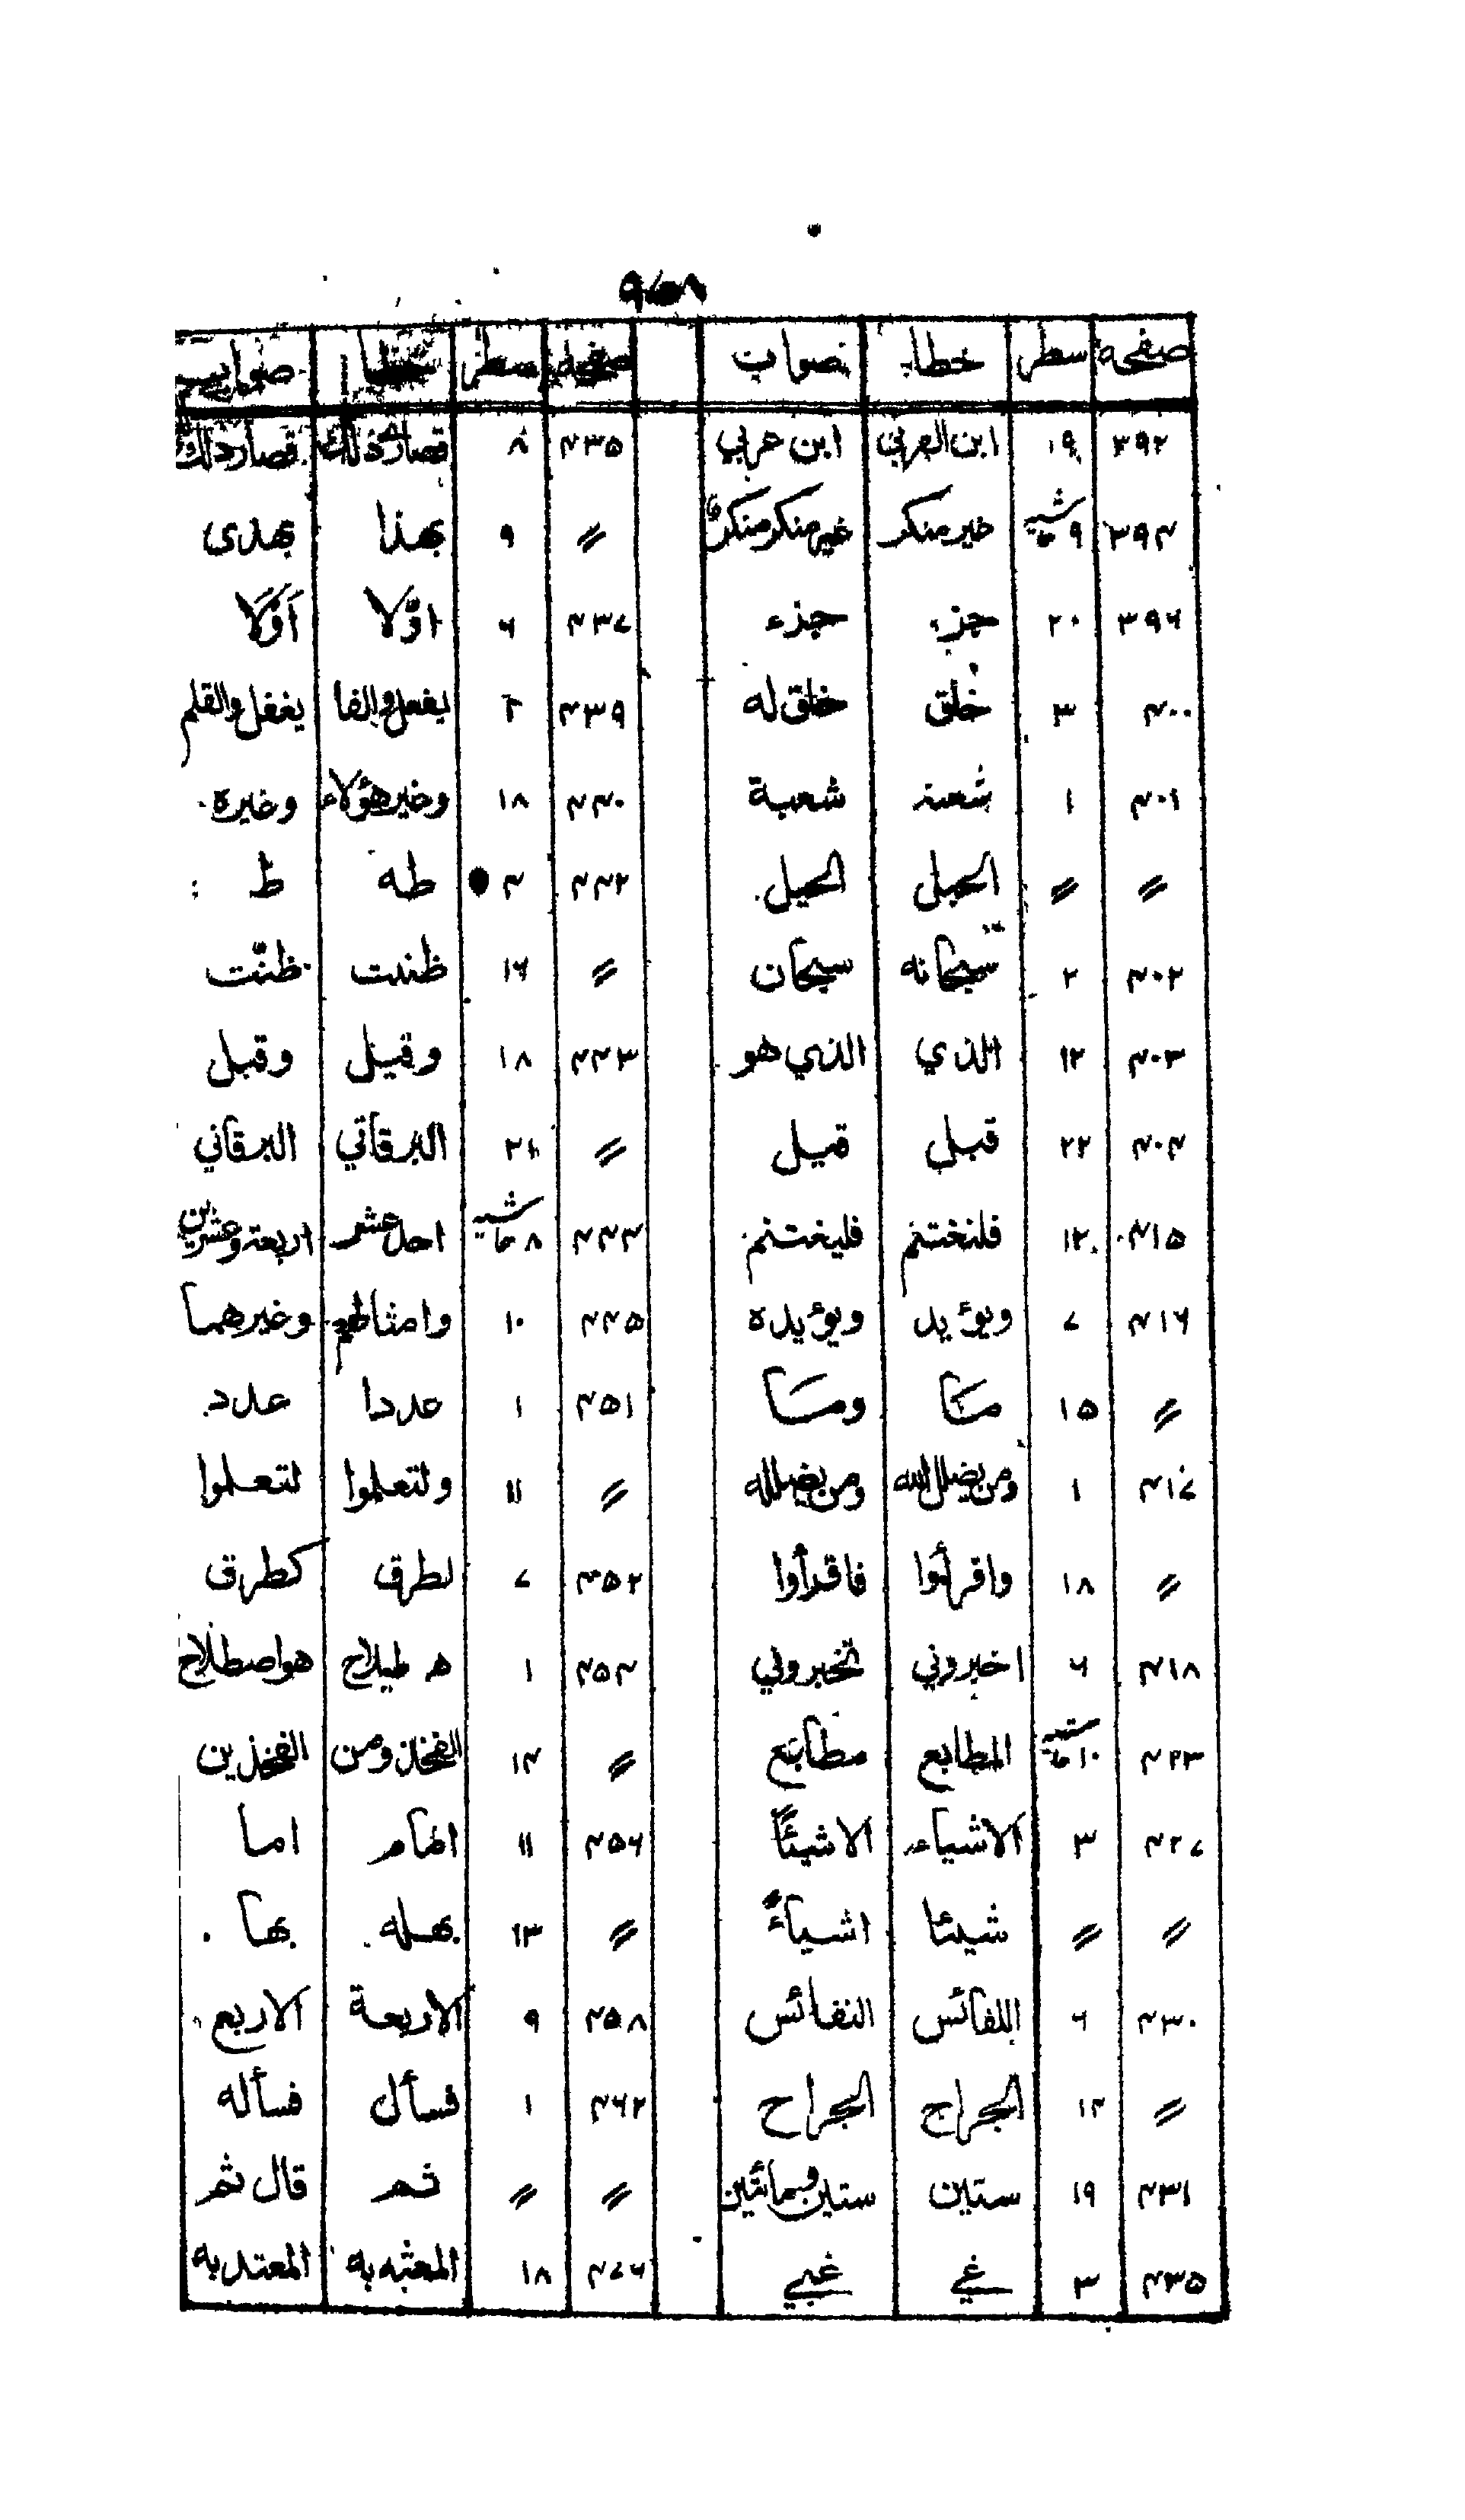 صفحه سطر خطاء صواب صفحه سطر خطا صواب
۳۹۲ ۱۹ ابن العربي ابن عربي ۴۳۵ ۸ قصار ذلك
۳۹۴ ۹ حاشيه غير منكر غير منكر منكرًا 〃 ۹ بهذا بهدى
۳۹۶ ۲۰ جزء جذء ۴۳۷ ۶ اوّلا أوّلا
۴۰۰ ۳ خلق خلق له ۴۳۹ ۲ يغفل والقلم
۴۰۱ ۱ شعبة ۴۴۰ ۱۸ وغير هؤلاء وغيره
〃 〃 الحبلى الحيل ۴۴۲ ۴ طه ط
۴۰۲ ۲ سبحانه سبحان 〃 ۱۶ ظننت ظنّت
۴۰۳ ۱۲ الذي الذي هو ۴۴۳ ۱۸ وقيل وقبل
۴۰۴ ۲۲ قبل قيل 〃 ۲۱ البرقاتي البرقاني
۴۱۵ ۱۲ فلنغتنم فليغتنم ۴۴۴ ۸ حاشيه احد عشر اربعة وعشرين
۴۱۶ ۷ ويؤيد ويؤيده ۴۴۵ ۱۰ وامثالهم وغيرهما
〃 ۱۵ ۴۵۱ ۱ عددا عدد
۴۱۷ ۱ ومن يضلل الله ومن يضلله 〃 ۱۱ ولتعلموا لتعلموا
〃 ۱۸ واقرأوا فاقرأوا ۴۵۲ ۷ لطرق كطرق
۴۱۸ ۶ اخبروني تخبروني ۴۵۴ ۱ هو اصطلاح
۴۲۳ ۱۰ حاشيه المطابع مطابع 〃 ۱۴ الفخذ ومن الفخذين
۴۲۷ ۳ الاشياء الا شيئًا ۴۵۶ ۱۱ اما
〃 〃 شيئا اشياءً 〃 ۱۳ بهله بها
۴۳۰ ۶ اللفائس النفائس ۴۵۸ ۹ الاربعة الاربع
〃 ۱۴ الجراج الجراح ۴۶۲ ۱ فسأل فسأله
۴۳۱ ۱۹ ستين ستين ومائتين 〃 〃 ثم قال ثم
۴۳۵ ۳ غي غبي ۴۷۶ ۱۸ المعتد به